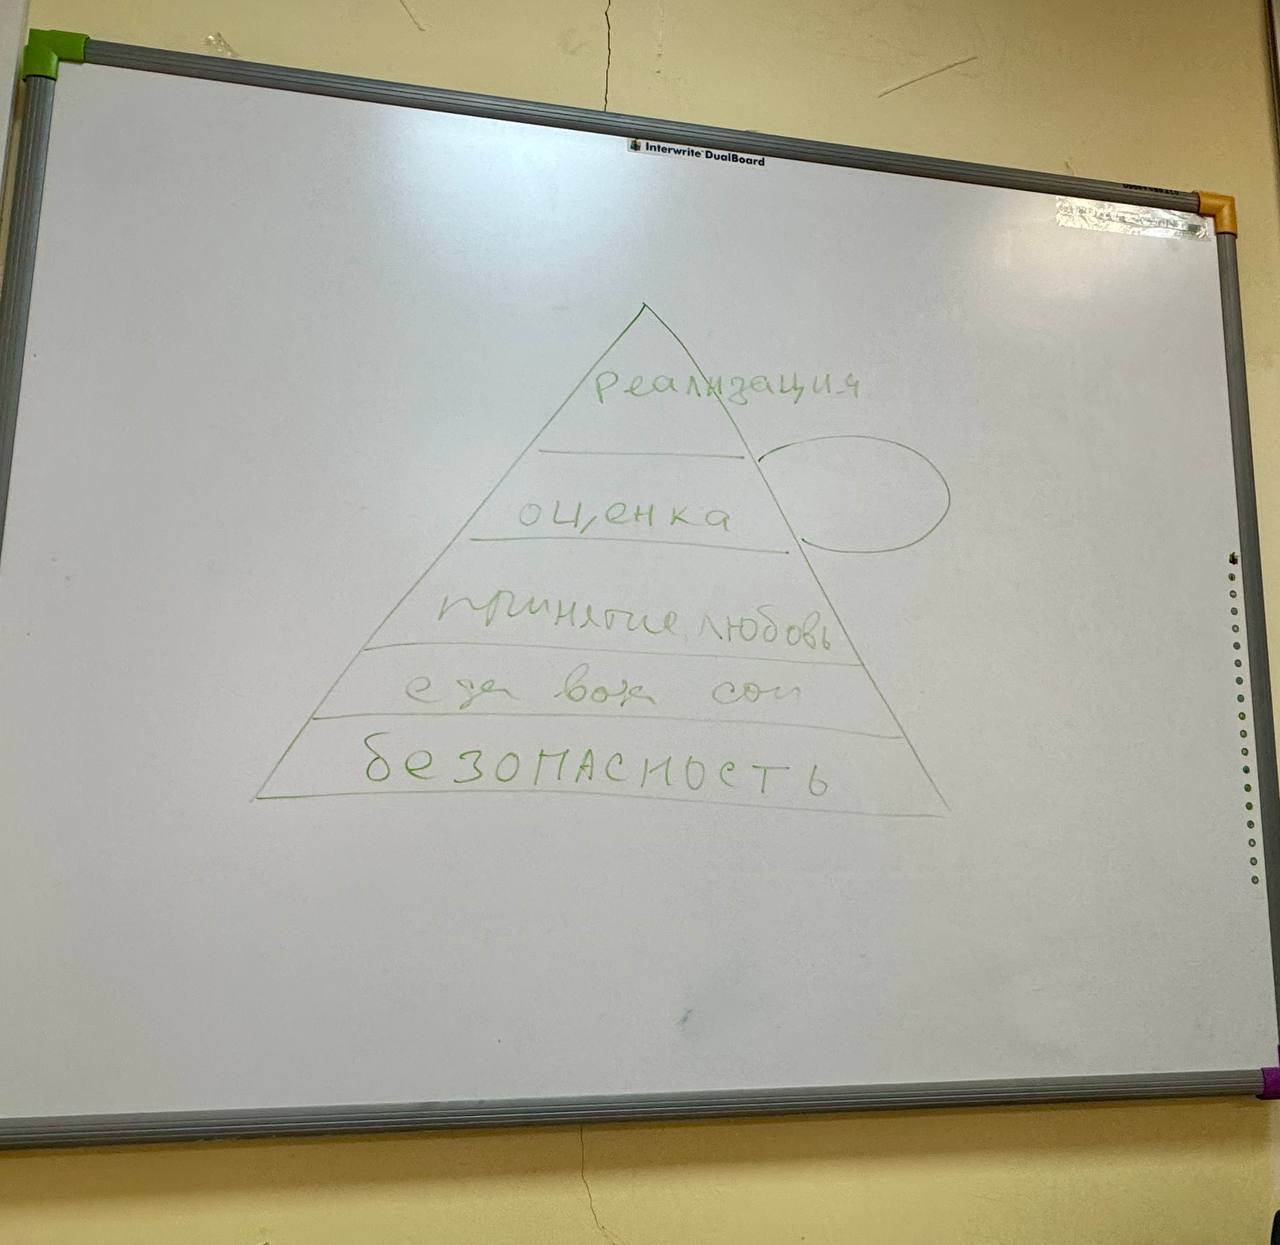 Interwrite DualBoard
реализация
оценка
принятие, любовь
еда вода сон
безопасность